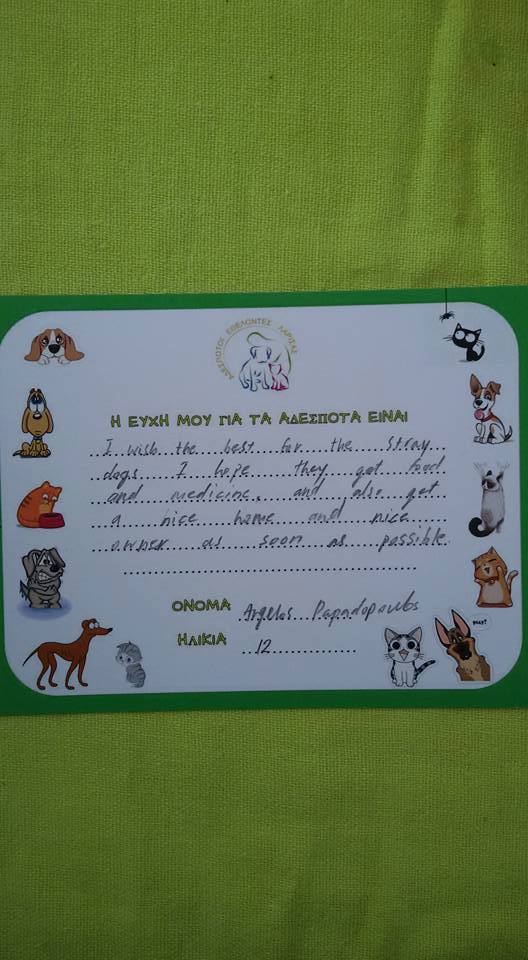 ΑΔΕΣΠΟΤΟΙ ΕΘΕΛΟΝΤΕΣ ΛΑΡΙΣΑΣ
Η ΕΥΧΗ ΜΟΥ ΓΙΑ ΤΑ ΑΔΕΣΠΟΤΑ ΕΙΝΑΙ
I wish the best for the stray
dogs I hope they get food
and medicine, and also get
a nice home and nice
owner as soon as possible.
ΟΝΟΜΑ Angelos Papadopoulos
ΗΛΙΚΙΑ 12
PLAY?